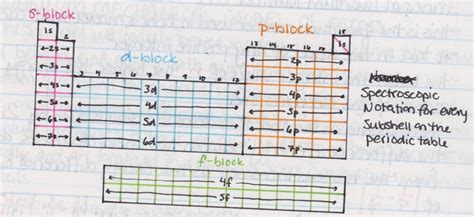 s-block
p-block
1s
2
d-block
13 14 15 16 17
1s
2s
2p
3s
3 4 5 6 7 8 9 10 11 12
3p
4s
3d
4p
5s
4d
5p
6s
5d
6p
7s
6d
7p
Spectroscopic
Notation for every
Subshell on the
periodic table
f-block
4f
5f